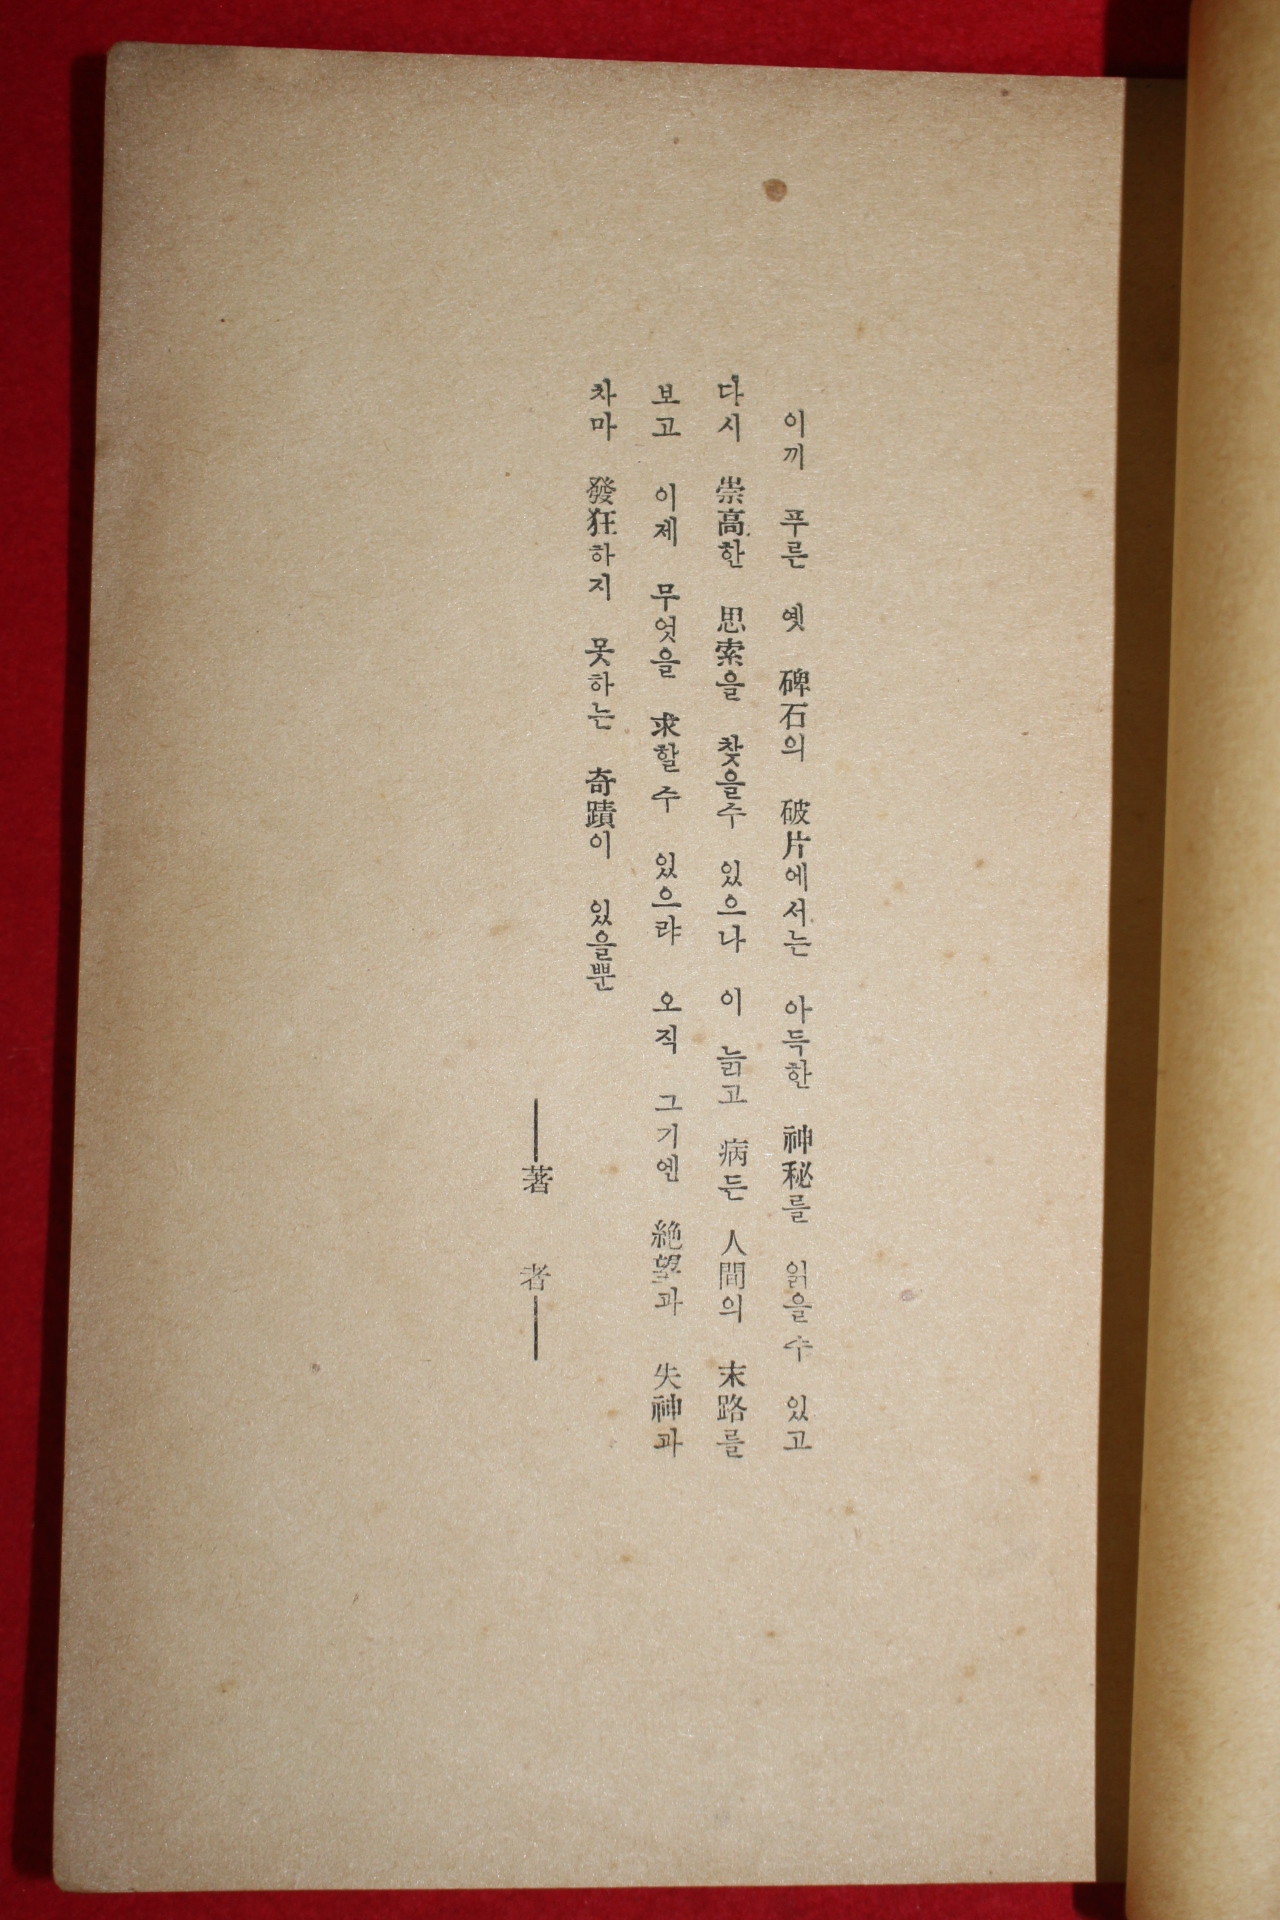 이끼 푸른 옛 碑石의 破片에서는 아득한 神秘를 읽을수 있고
다시 崇高한 思索을 찾을수 있으나 이 늙고 病든 人間의 末路를
보고 이제 무엇을 求할수 있으랴 오직 그기엔 絶望과 失神과
차마 發狂하지 못하는 奇蹟이 있을뿐
——著 者——